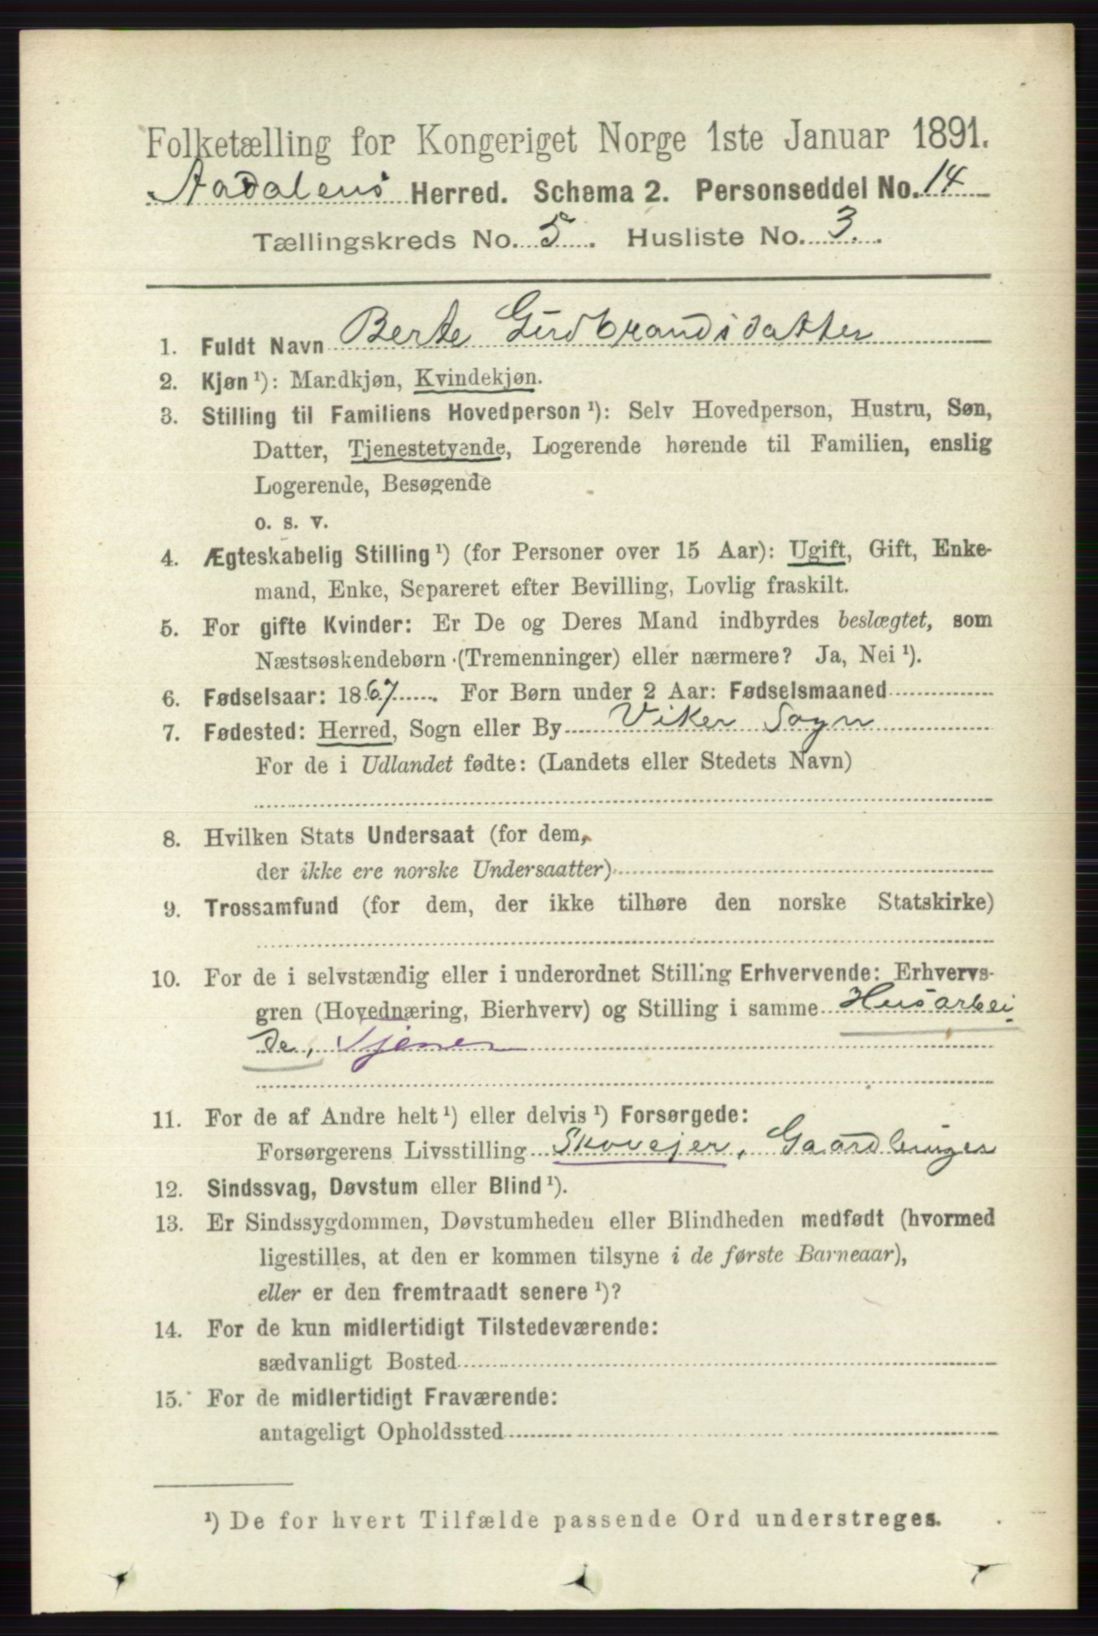 Folketælling for Kongeriget Norge 1ste Januar 1891.
Aadalens Herred. Schema 2. Personseddel No. 14
Tællingskreds No. 5. Husliste No. 3.
1. Fuldt Navn Berte Gudbrandsdatter
2. Kjøn ¹): Mandkjøn, Kvindekjøn.
3. Stilling til Familiens Hovedperson ¹): Selv Hovedperson, Hustru, Søn,
Datter, Tjenestetyende, Logerende hørende til Familien, enslig
Logerende, Besøgende
o. s. v.
4. Ægteskabelig Stilling ¹) (for Personer over 15 Aar): Ugift, Gift, Enke-
mand, Enke, Separeret efter Bevilling, Lovlig fraskilt.
5. For gifte Kvinder: Er De og Deres Mand indbyrdes beslægtet, som
Næstsøskendebørn (Tremenninger) eller nærmere? Ja, Nei ¹).
6. Fødselsaar: 1867. For Børn under 2 Aar: Fødselsmaaned
7. Fødested: Herred, Sogn eller By Viker Sogn
For de i Udlandet fødte: (Landets eller Stedets Navn)
8. Hvilken Stats Undersaat (for dem,
der ikke ere norske Undersaatter)
9. Trossamfund (for dem, der ikke tilhøre den norske Statskirke)
10. For de i selvstændig eller i underordnet Stilling Erhvervende: Erhvervs-
gren (Hovednæring, Bierhverv) og Stilling i samme Husarbei
de, Tjener
11. For de af Andre helt ¹) eller delvis ¹) Forsørgede:
Forsørgerens Livsstilling Skovejer, Gaardbruger
12. Sindssvag, Døvstum eller Blind ¹).
13. Er Sindssygdommen, Døvstumheden eller Blindheden medfødt (hvormed
ligestilles, at den er kommen tilsyne i de første Barneaar),
eller er den fremtraadt senere ¹)?
14. For de kun midlertidigt Tilstedeværende:
sædvanligt Bosted
15. For de midlertidigt Fraværende:
antageligt Opholdssted
¹) De for hvert Tilfælde passende Ord understreges.